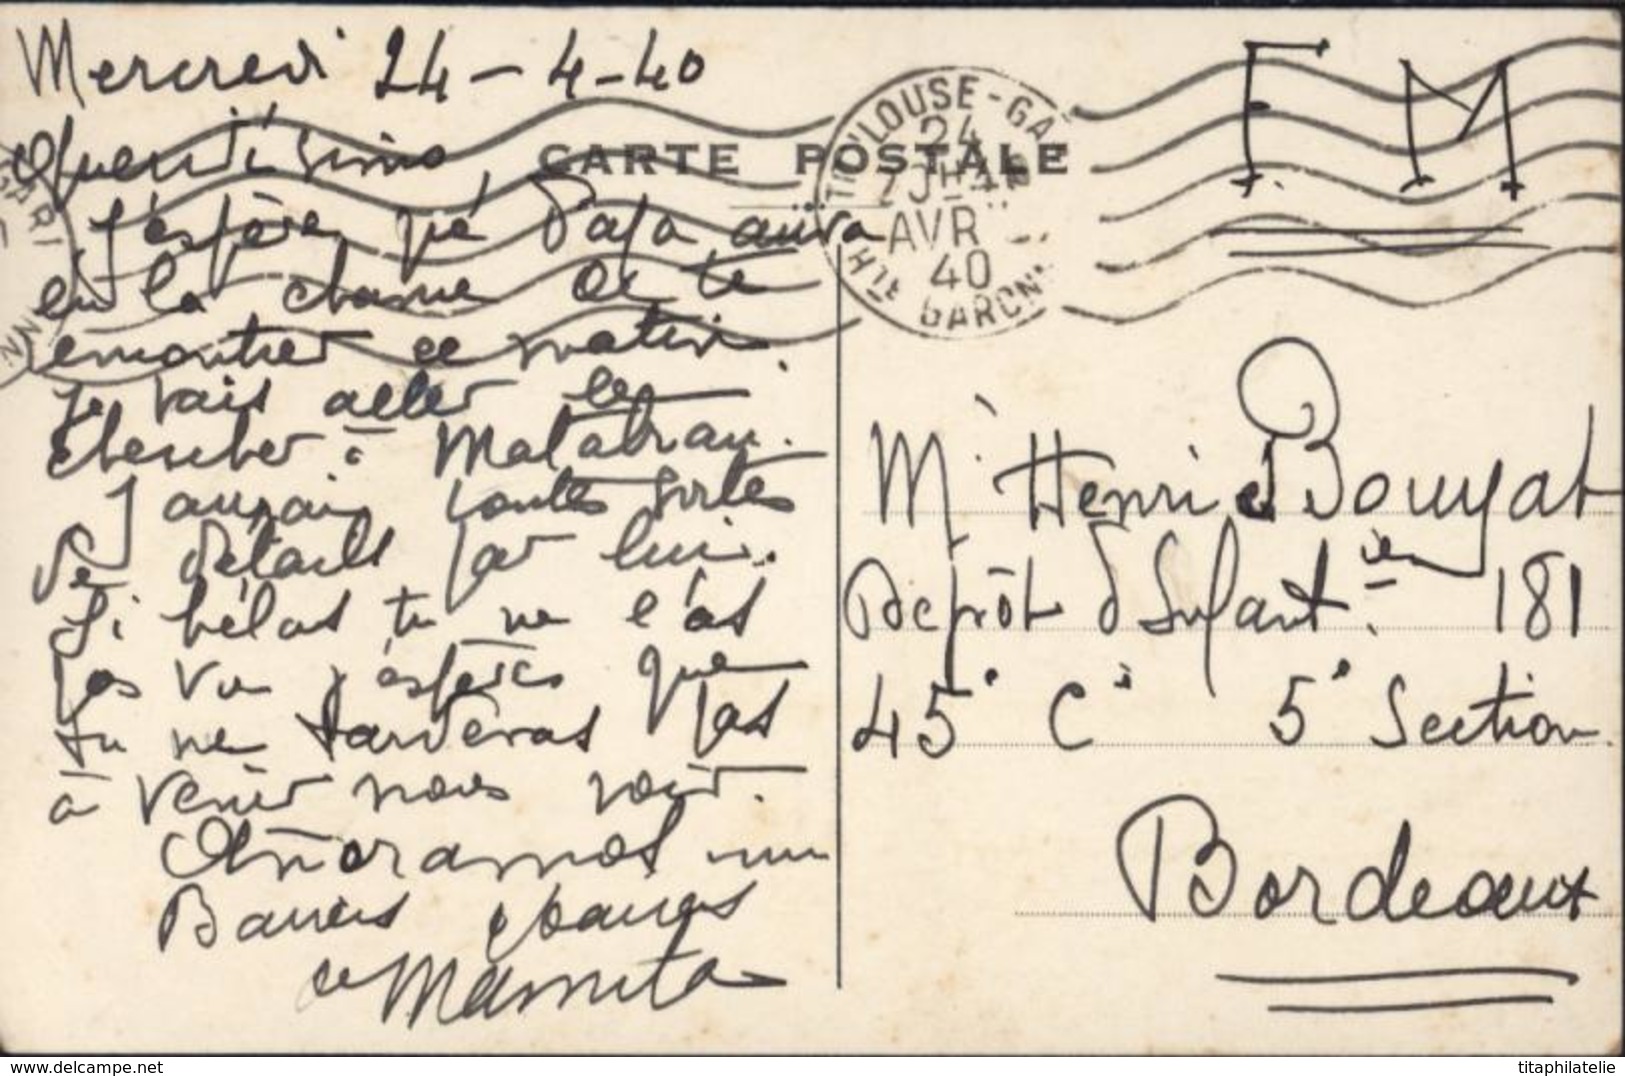 Mercredi 24-4-40
Queridísimo,
J'espère que Papa aura
eu la chance de te
rencontrer ce matin.
Je vais aller le
chercher à Matabiau.
J'aurai toutes sortes
de détails par lui.
Si hélas tu ne l'as
pas vu j'espère que
tu ne tarderas pas
à venir nous voir.
Baisers
de Mamita
CARTE POSTALE
TOULOUSE-GARE
24
AVR
40
HTE GARONNE
F.M.
Mr Henri Bouyat
Dépôt d'Infanterie 181
45e Cie 5e Section
Bordeaux
www.delcampe.net
titaphilatelie